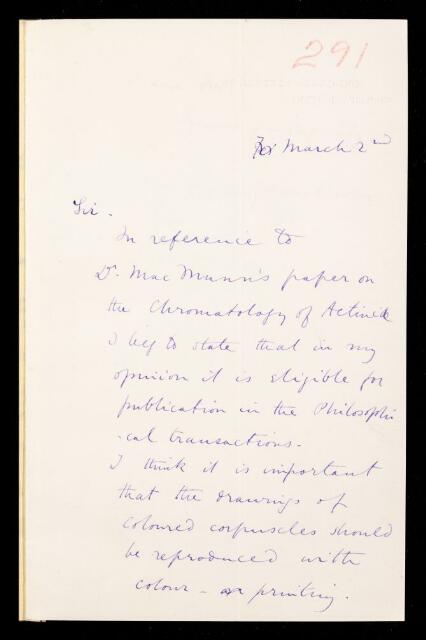 291
March 2nd
Sir.
In reference to
Dr. Mac Munn's paper on
the Chromatology of Actiniæ
I beg to state that in my
opinion it is eligible for
publication in the Philosophi
-cal transactions.
I think it is important
that the drawings of
coloured corpuscles should
be reproduced with
colour - printing.